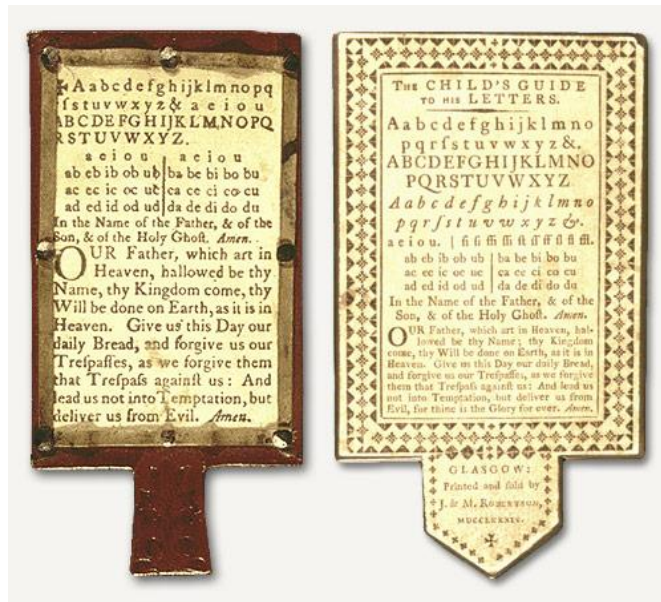 ✠Aabcdefghijklmnopq
rſstuvwxyz& aeiou
ABCDEFGHIJKLMNOPQ
RSTUVWXYZ.
a e i o u | a e i o u
ab eb ib ob ub | ba be bi bo bu
ac ec ic oc uc | ca ce ci co cu
ad ed id od ud | da de di do du
In the Name of the Father, & of the
Son, & of the Holy Ghoſt. Amen.
OUR Father, which art in
Heaven, hallowed be thy
Name, thy Kingdom come, thy
Will be done on Earth, as it is in
Heaven. Give us this Day our
daily Bread, and forgive us our
Treſpaſſes, as we forgive them
that Treſpaſs againſt us: And
lead us not into Temptation, but
deliver us from Evil. Amen.
THE CHILD'S GUIDE
TO HIS LETTERS.
Aabcdefghijklmno
pqrſstuvwxyz&.
ABCDEFGHIJKLMNO
PQRSTUVWXYZ
Aabcdefghijklmno
pqrſstuvwxyz&.
aeiou.
ab eb ib ob ub | ba be bi bo bu
ac ec ic oc uc | ca ce ci co cu
ad ed id od ud | da de di do du
In the Name of the Father, & of the
Son, & of the Holy Ghoſt. Amen.
OUR Father, which art in Heaven, hal-
lowed be thy Name; thy Kingdom
come, thy Will be done on Earth, as it is in
Heaven. Give us this Day our daily Bread,
and forgive us our Treſpaſſes, as we forgive
them that Treſpaſs againſt us: And lead us
not into Temptation, but deliver us from
Evil, for thine is the Glory for ever. Amen.
GLASGOW:
Printed and ſold by
J. & M. ROBERTSON,